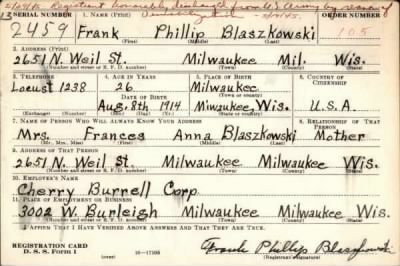 2/10/45. Registrant honorably discharged from U.S. Army by reason of
Demobilization 3/9/45.
SERIAL NUMBER 1. NAME (Print) ORDER NUMBER
2459 Frank Phillip Blaszkowski 105
(First) (Middle) (Last)
2. ADDRESS (Print)
2651 N. Weil St. Milwaukee Mil. Wis.
(Number and street or R. F. D. number) (Town) (County) (State)
3. TELEPHONE 4. AGE IN YEARS 5. PLACE OF BIRTH 6. COUNTRY OF CITIZENSHIP
Locust 1238 26 Milwaukee
DATE OF BIRTH (Town or county)
Aug. 8th 1914 Miwaukee, Wis. U.S.A.
(Exchange) (Number) (Mo.) (Day) (Yr.) (State or country)
7. NAME OF PERSON WHO WILL ALWAYS KNOW YOUR ADDRESS 8. RELATIONSHIP OF THAT PERSON
Mrs. Frances Anna Blaszkowski Mother
(Mr., Mrs., Miss) (First) (Middle) (Last)
9. ADDRESS OF THAT PERSON
2651 N. Weil St. Milwaukee Milwaukee Wis.
(Number and street or R. F. D. number) (Town) (County) (State)
10. EMPLOYER'S NAME
Cherry Burrell Corp.
11. PLACE OF EMPLOYMENT OR BUSINESS
3002 W. Burleigh Milwaukee Milwaukee Wis.
(Number and street or R. F. D. number) (Town) (County) (State)
I AFFIRM THAT I HAVE VERIFIED ABOVE ANSWERS AND THAT THEY ARE TRUE.
REGISTRATION CARD
D. S. S. Form 1 16—17105 Frank Phillip Blaszkowski
(Registrant's signature)